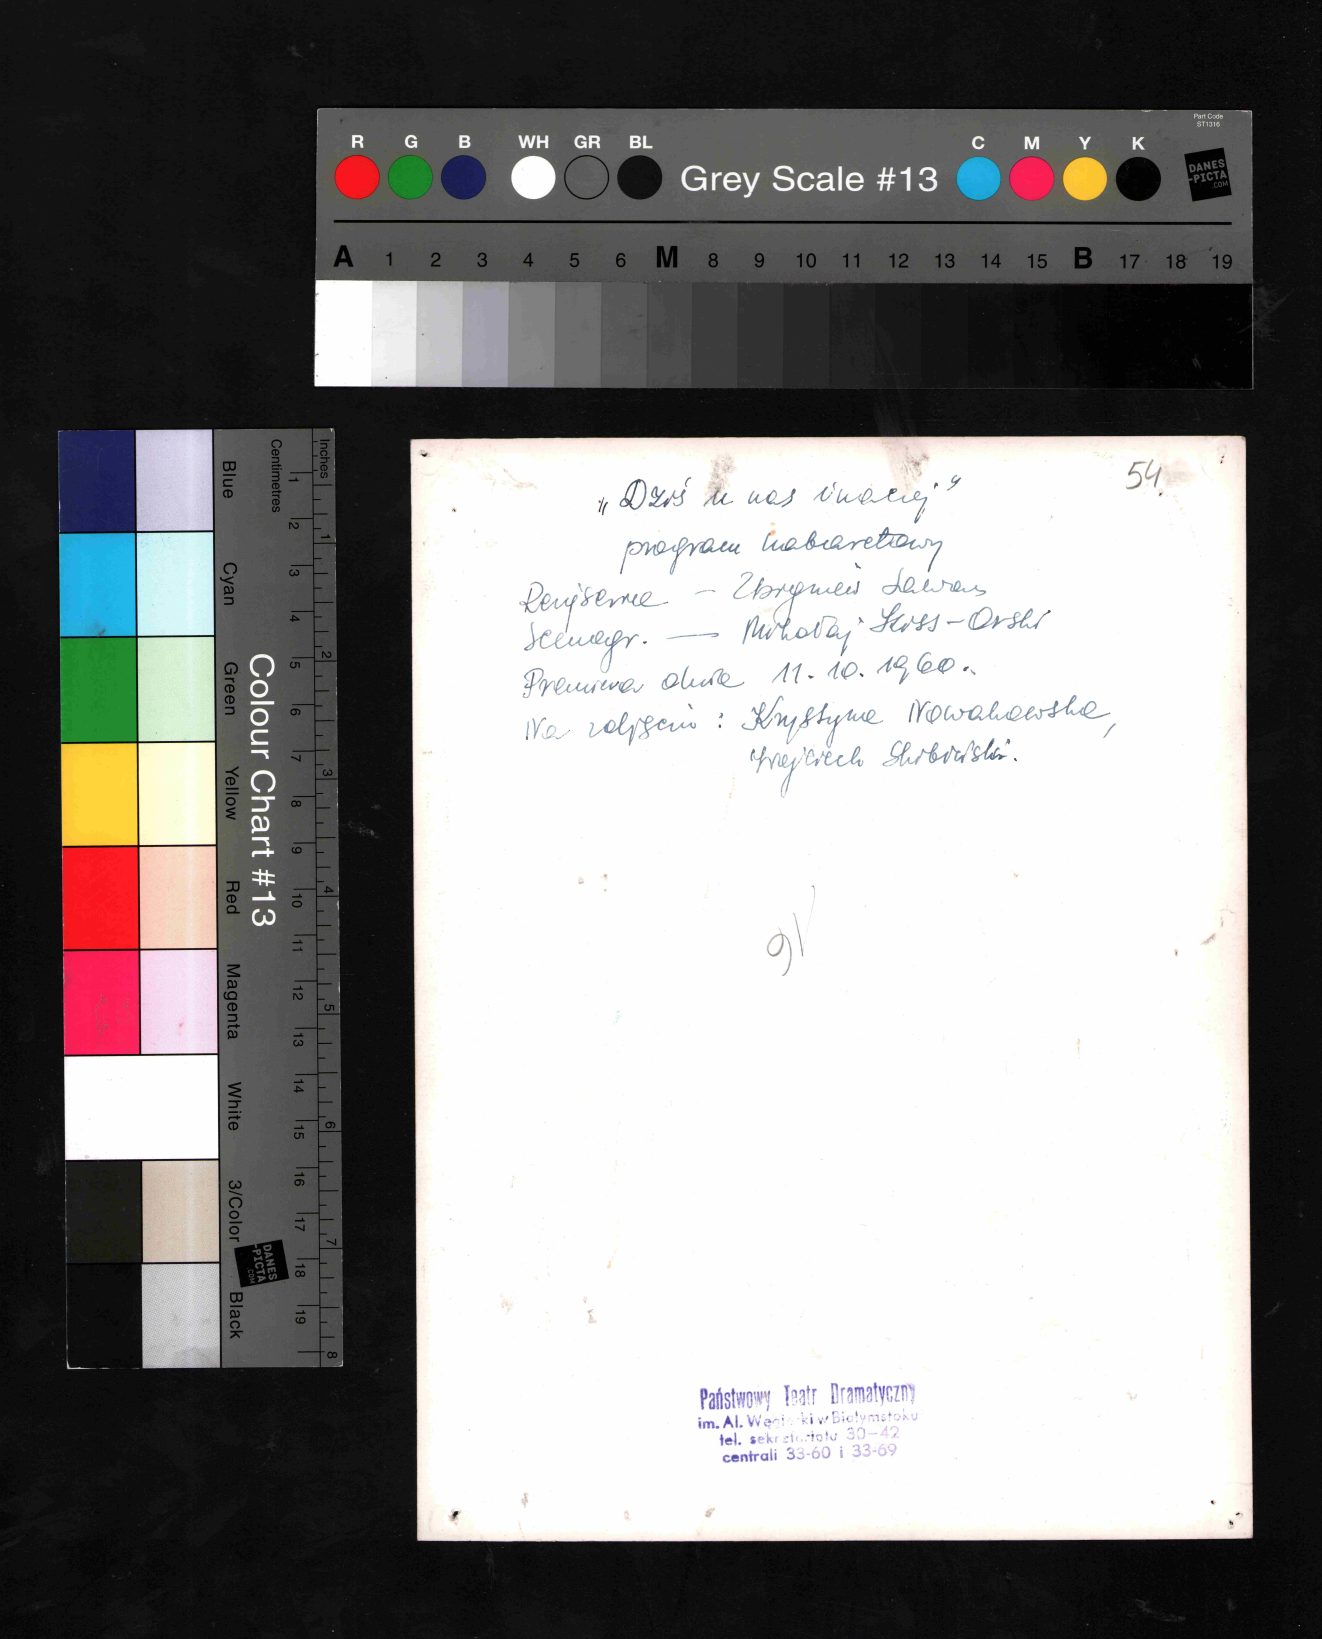 R G B WH GR BL Grey Scale #13 C M Y K
Part Code
ST1316
DANES
-PICTA
.COM
A 1 2 3 4 5 6 M 8 9 10 11 12 13 14 15 B 17 18 19
Colour Chart #13
Blue Cyan Green Yellow Red Magenta White 3/Color Black
Centimetres
1 2 3 4 5 6 7 8 9 10 11 12 13 14 15 16 17 18 19
Inches
1 2 3 4 5 6 7 8
DANES
-PICTA
.COM
54
„Dziś u nas inaczej"
program kabaretowy
Reżyseria – Zbigniew Sawan
Scenogr. — Mikołaj Kiss-Orski
Premiera dnia 11. 10. 1960.
Na zdjęciu : Krystyna Nowakowska,
Wojciech
Państwowy Teatr Dramatyczny
im. Al. w Białymstoku
tel. sekretariatu 30-42
centrali 33-60 i 33-69